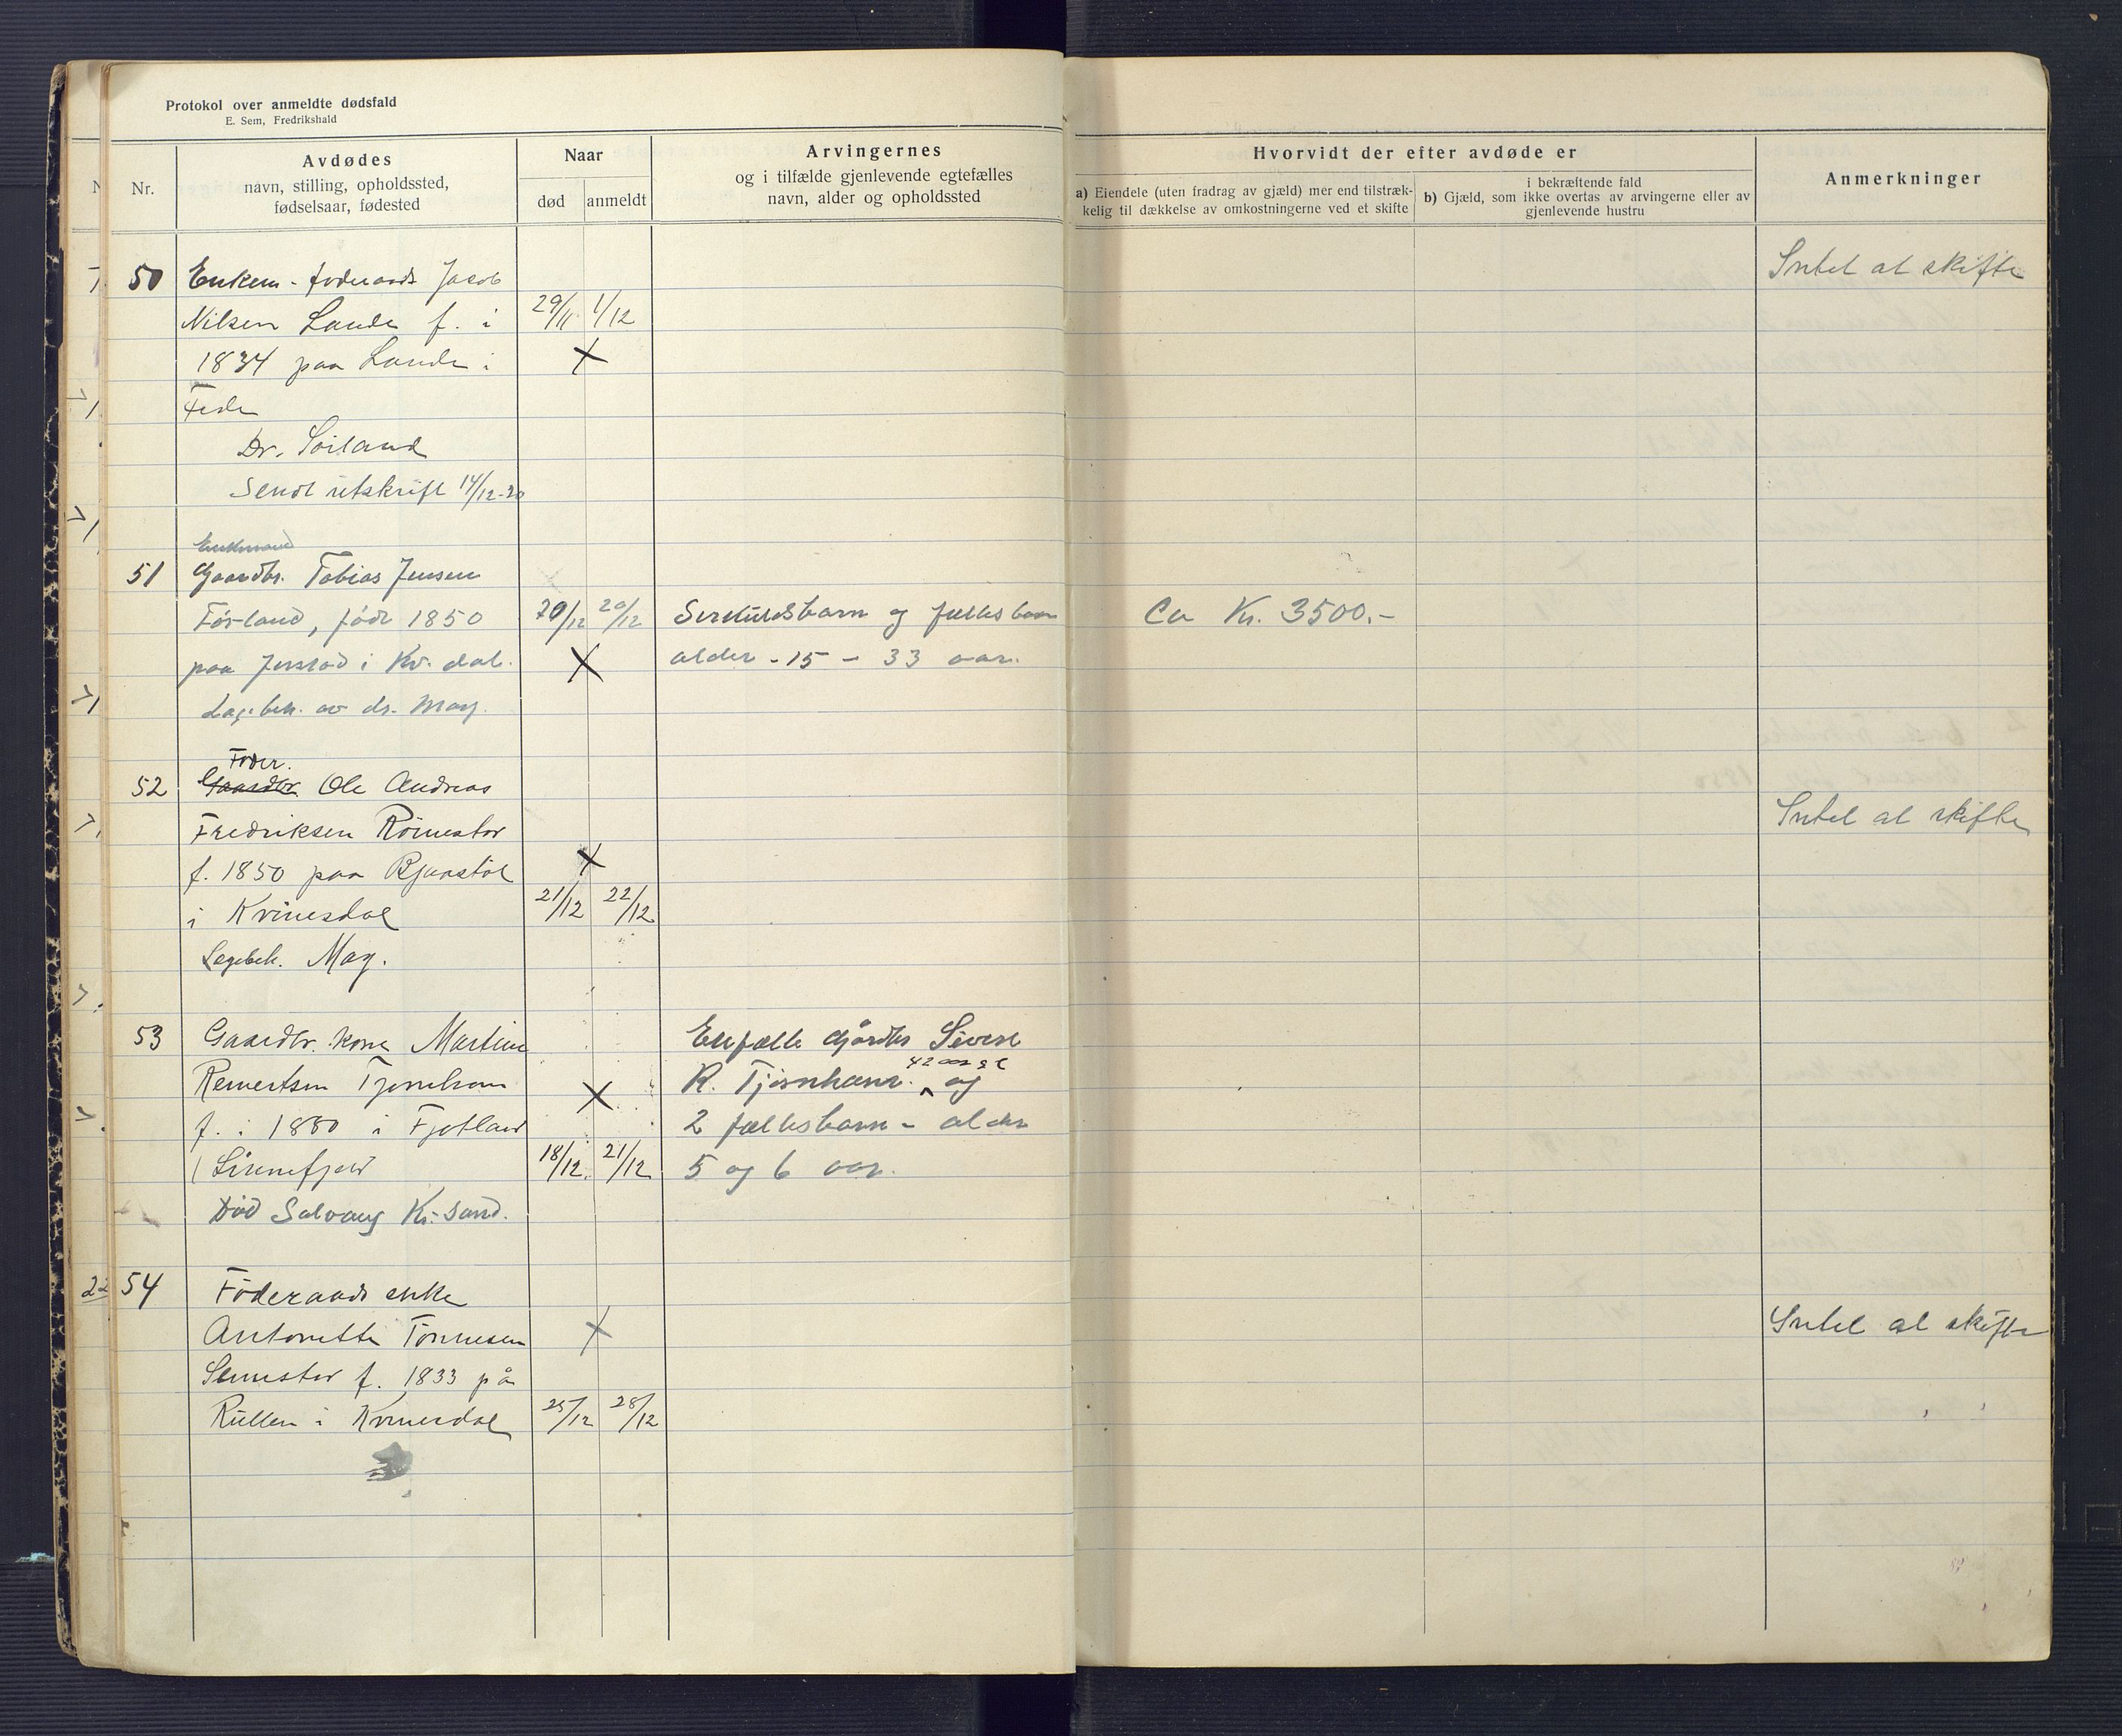 Protokol over anmeldte dødsfald
E. Sem, Fredrikshald
Nr.
Avdødes
navn, stilling, opholdssted,
fødselsaar, fødested
Naar
død
anmeldt
Arvingernes
og i tilfælde gjenlevende egtefælles
navn, alder og opholdssted
Hvorvidt der efter avdøde er
a) Eiendele (uten fradrag av gjæld) mer end tilstræk-
kelig til dækkelse av omkostningerne ved et skifte
i bekræftende fald
b) Gjæld, som ikke overtas av arvingerne eller av
gjenlevende hustru
Anmerkninger
50 Enkem. føderaads Jacob
Nilsen Lande f. i 29/11 1/12
1834 paa Lande i X
Fede
Dr. Soiland
Sendt utskrift 14/12-20
Intet at skifte
Enkmand
51 Gaardbr. Tobias Jensen
Førland, født 1850 20/12 20/12 Særkuldsbarn og fællesbarn Ca Kr. 3500.-
paa i Kv. dal. X alder - 15 - 33 aar.
Lægebek. av dr. May.
Føder.
52 Gaardbr. Ole Andreas
Fredriksen Römestøl Intet at skifte
f. 1850 paa X
i Kvinesdal 21/12 22/12
Lægebek. May.
53 Gaardbr. kone Martine Ektfælle Gårdbr Sivert
42 aar gl
R. og
f. i 1880 i Fjotland X 2 fællesbarn - alder
18/12 21/12 5 og 6 aar.
Død Solvang Kr.sand.
54 Föderaads enke
Antonette Tønnesen X Intet at skifte
f. 1833 på
i Kvinesdal 25/12 28/12